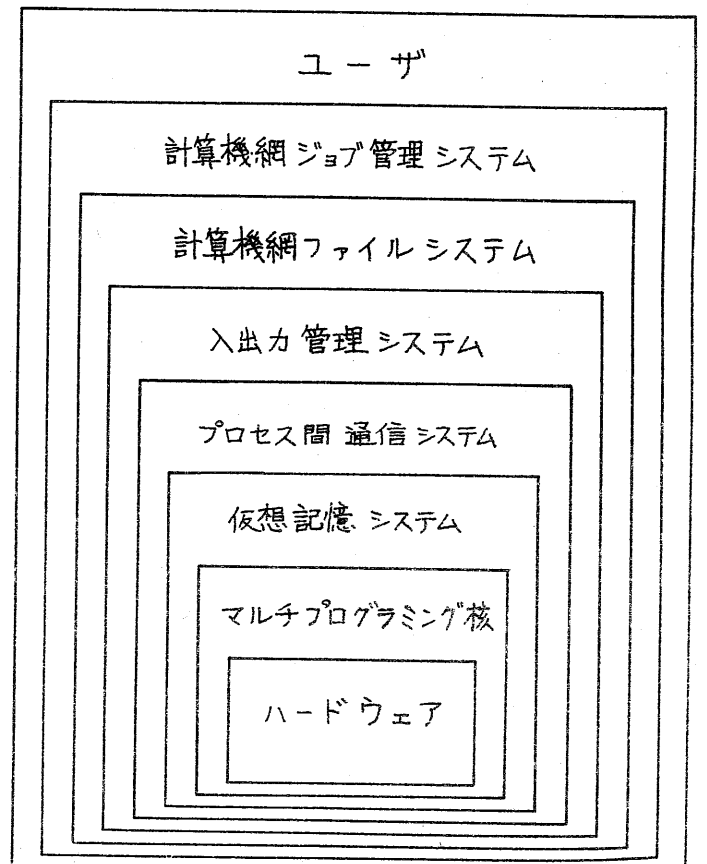 ユーザ
計算機網ジョブ管理システム
計算機網ファイルシステム
入出力管理システム
プロセス間通信システム
仮想記憶システム
マルチプログラミング核
ハードウェア